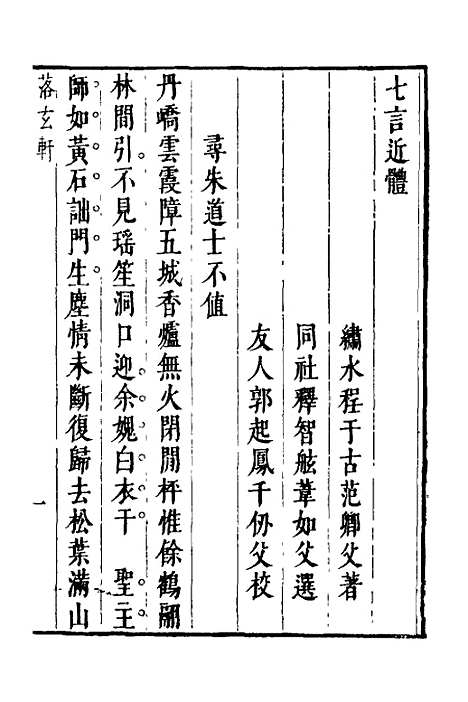 七言近體
繡水程于古范卿父著
同社釋智舷葦如父選
友人郭起鳳千仞父校
尋朱道士不值
丹嶠雲霞障五城香爐無火閉閒枰惟餘鶴翮
林間引不見瑶笙洞口迎余媿白衣干 聖主
師如黃石詘門生塵情未斷復歸去松葉滿山
落玄軒
一